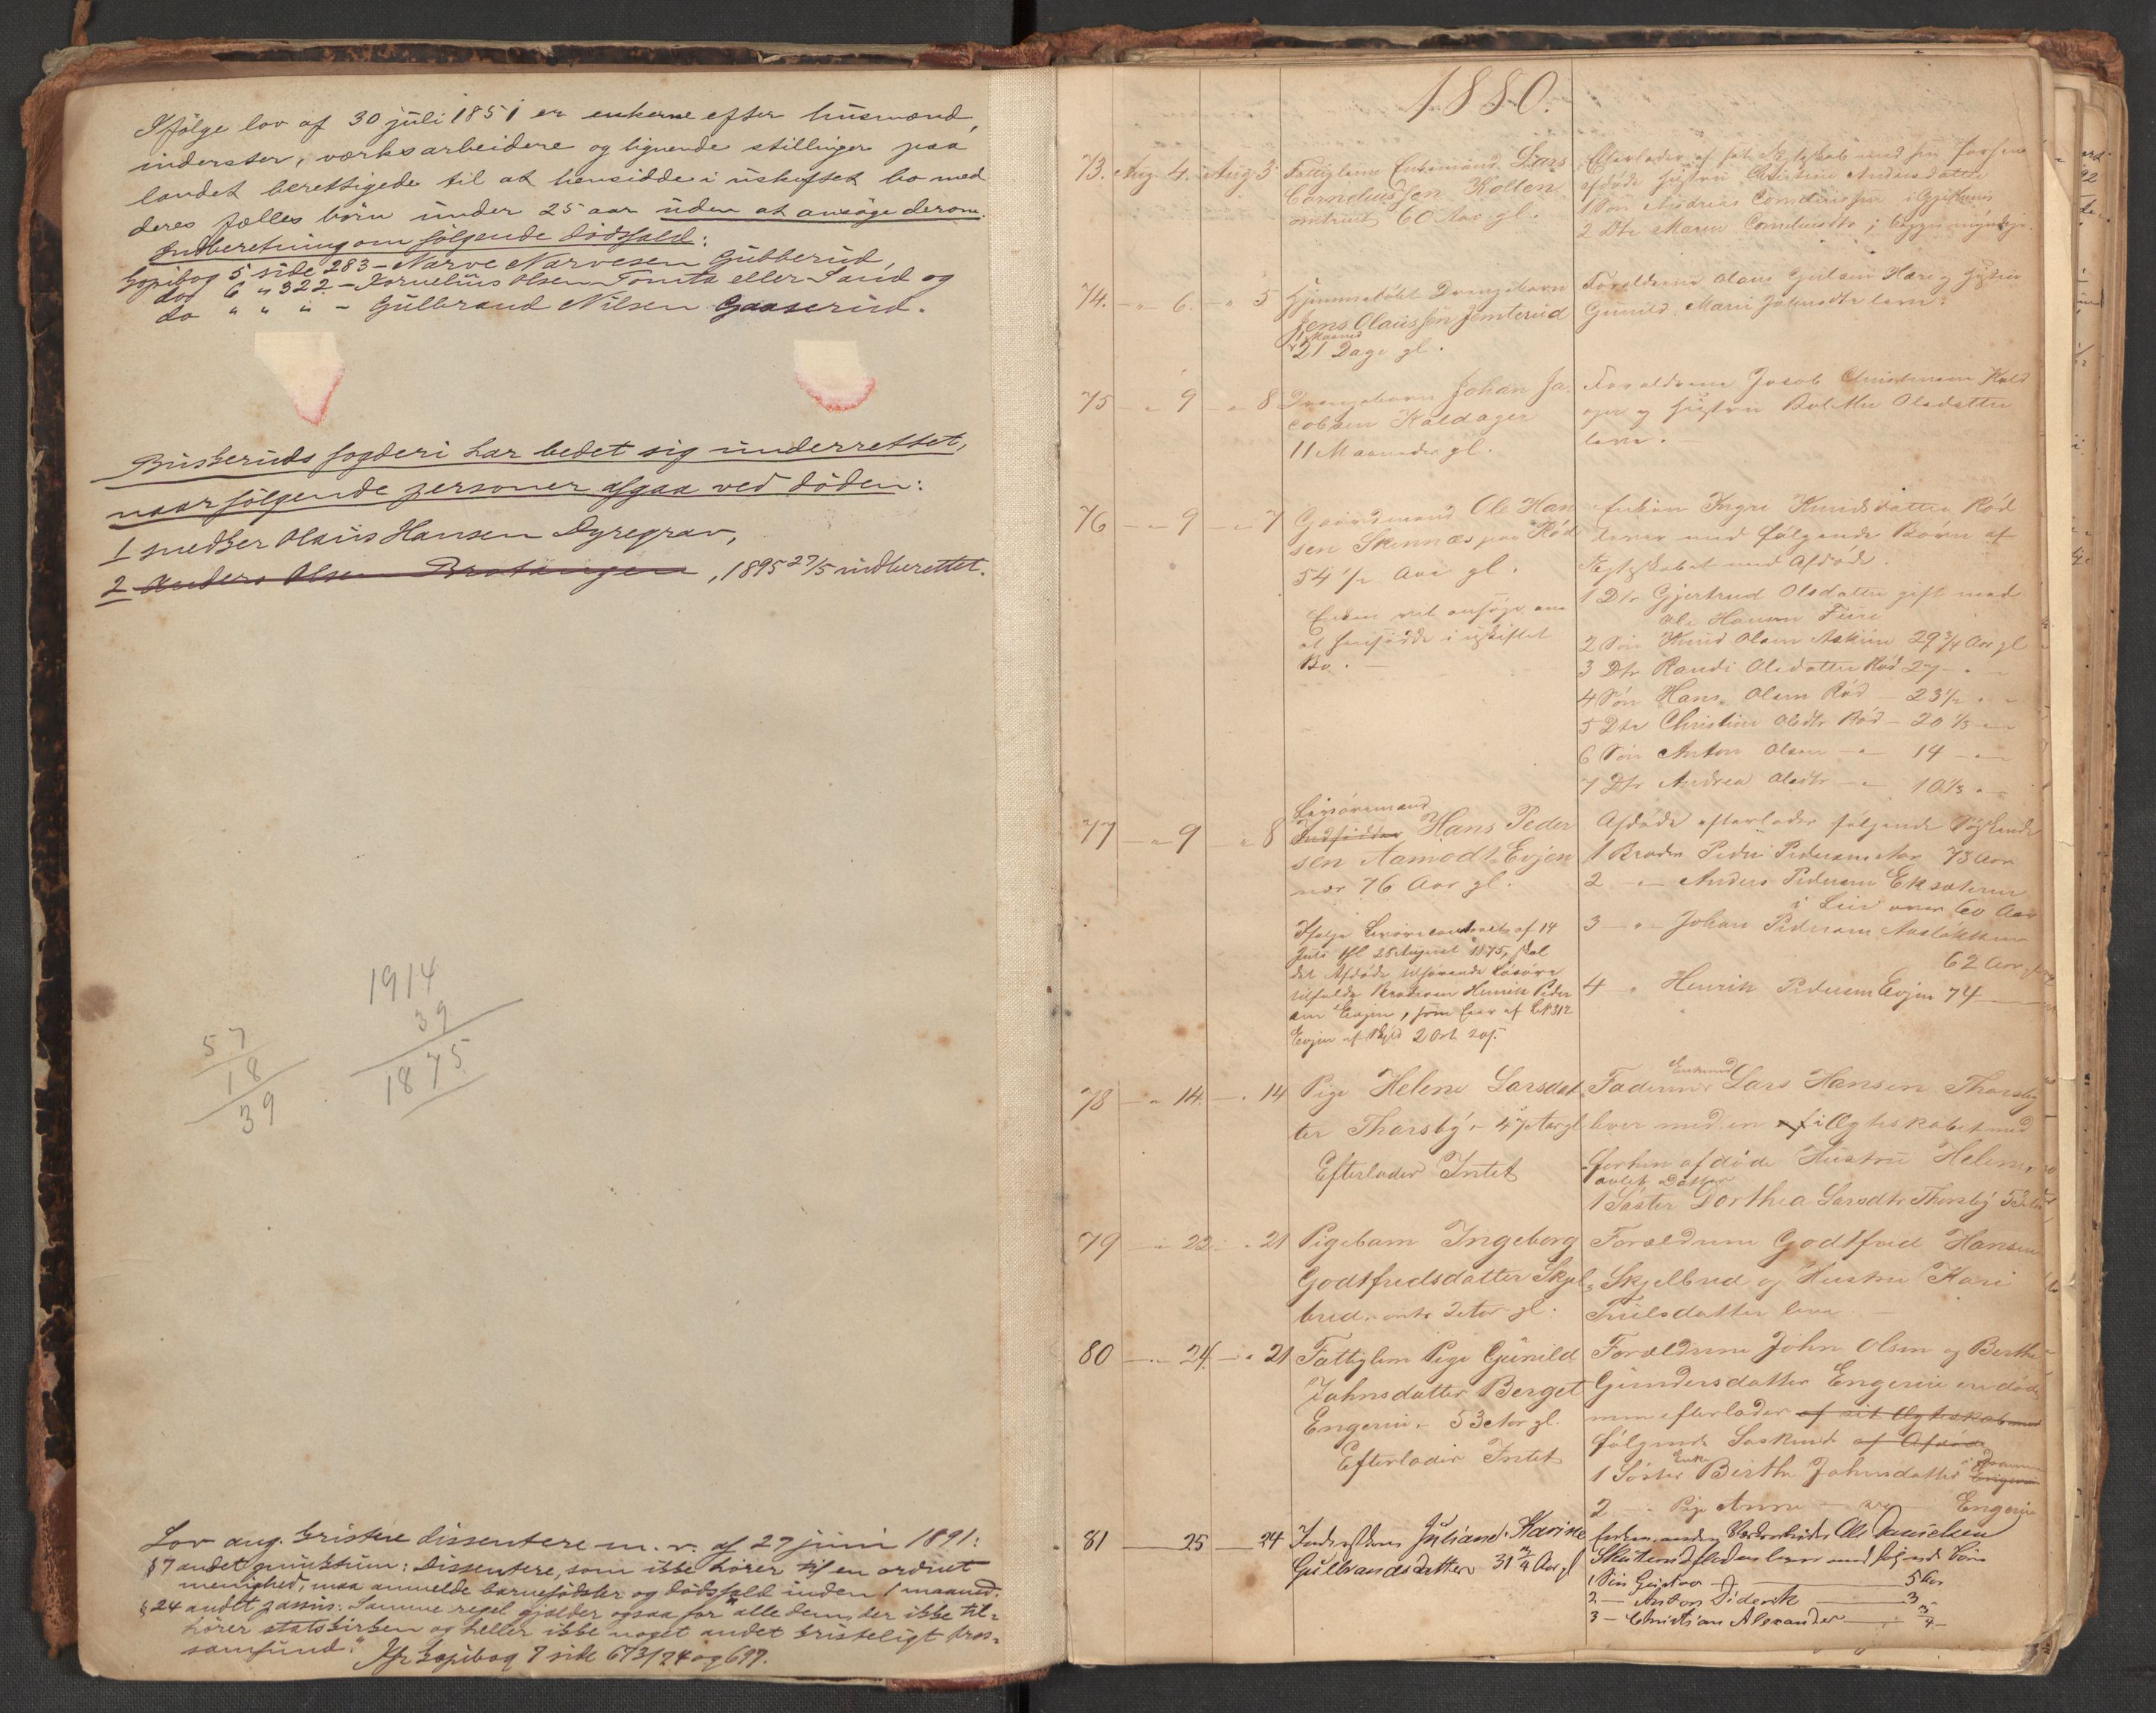 Ifölge lov af 30 juli 1851 er enkerne efter husmænd,
inderster, værksarbeidere og lignende stillinger paa
landet berettigede til at hensidde i uskiftet bo med
deres fælles börn under 25 aar uden at ansöge derom.
Indberetning om fölgende dödsfald:
Kopibog 5 side 283 – Narve Narvesen Gubberud,
do 6 " 322 – Kornelius Olsen Tomta eller Sand og
do " " " – Gulbrand Nilsen Gaaserud.
Buskeruds fogderi har bedet sig underrettet,
naar fölgende personer afgaa ved döden:
1 snedker Olaus Hansen Dyregrav,
2 Anders Olsen Bratningen, 1895 27/5 indberettet.
1914
39
1875
57
18
39
Lov ang. kristne dissentere m. v. af 27 juni 1891:
§ 7 andet punktum: Dissentere, som ikke hører til en ordnet
menighed, maa anmelde barnefødsler og dødsfald inden 1 maaned.
§ 24 andet passus: Samme regel gjælder ogsaa for "alle dem, der ikke til-
hører statskirken og heller ikke noget andet kristeligt tros-
samfund." Jfr kopibog 7 side 673/74 og 697.
1880.
73. Aug. 4. Aug 3. Fattiglem Enkemand Lars
Corneliussen Kolten
omtrent 60 Aar gl.
Efterlader af sit Ægteskab med sin forhen
afdøde Hustru Christine Andersdatter
1 Søn Andreas Corneliussen i
2 Dtr Maren Corneliusdtr; begge myndige.
74. – " 6. – " 5 Hjemmedøbt Drengebarn
Jens Olaussen Jemterud
1 Maaned
21 Dage gl.
Forældrene Olaus Hustru
Gunild Marie Johnsdtr lever.
75 – " 9 – " 8 Drengebarn Johan Ja-
cobsen Kaldager
11 Maaneder gl.
Forældrene Jacob Christensen Kald
ager og Hustru Bolette Olsdatter
lever.
76 – " 9 – " 7 Gaardmand Ole Han
sen Skinnæs paa Rød
54 1/2 Aar gl.
Enken vil ansøge om
at hensidde i uskiftet
Bo. –
Enken Ingri Knudsdatter Rød
lever med følgende Børn af
Ægteskabet med Afdøde.
1 Dtr Gjertrud Olsdatter gift med
Ole Hansen Fure
2 Søn Knud Olsen Askim 29 3/4 Aar gl
3 Dtr Randi Olsdatter Rød 27 – "
4 Søn Hans Olsen Rød – 23 1/2 " –
5 Dtr Christine Olsdtr Rød – 20 1/3 –
6 Søn Anton Olsen – " – 14 – "
7 Dtr Andrea Olsdtr – " – 10 1/3 " –
77 – " 9 " 8 Legsøremand
Indsidder Hans Peder
sen Aamodt Evjen
nær 76 Aar gl.
Ifølge af 14
Juli thl 28 August 1875, skal
det Afdøde tilhørende Løsøre
tilfalde Broderen Henrik Peder
sen Evjen, som
Evjen af Skyld 2 Ort
Afdøde efterlader følgende Søskende
1 Broder Peder Pedersen 78 Aar
2 – " – Anders Pedersen Eksæteren
i Lier over 60 Aar
3 – " – Johan Pedersen Aasløkken
62 Aar
4 " Henrik Pedersen Evjen 74 –
78 – " 14. – " 14 Pige Helene Larsdat-
ter Thorsby – 47 Aar gl
Efterlader Intet
Faderen Enkemd Lars Hansen Thorsby
lever med en i Ægteskabet med
forhen afdøde Hustru Helene,
avlet Datter
1 Søster Dorthea Larsdtr Thorsby
79 – " 22 – " 21 Pigebarn Ingeborg
Godtfredsdatter Skjel-
bred, omtr 2 Aar gl.
Forældrene Godtfred Hansen
Skjelbred og Hustru Kari
Truelsdatter lever
80 – " 24. – " 21 Fattiglem Pige Gunild
Johnsdatter Berget
Engerne. 53 Aar gl.
Efterlader Intet
Forældrene John Olsen og Berthe
Gundersdatter Engerne ere døde
men efterlader af sit Ægteskab med
følgende Søskende af Afdøde
1 Søster Enke Berthe Johnsdatter i Drammen Engerne
2 – " Pige Anne – " – Engerne
81 – 25 – 24 Juliane Karine
Gulbrandsdatter 31 3/4 Aar gl
Ole Danielsen
lever med følgende Børn
1 Søn Gustav – 5 Aar
2 – Anton Diderik – 3
3 – Christian Alexander – 3/4 –